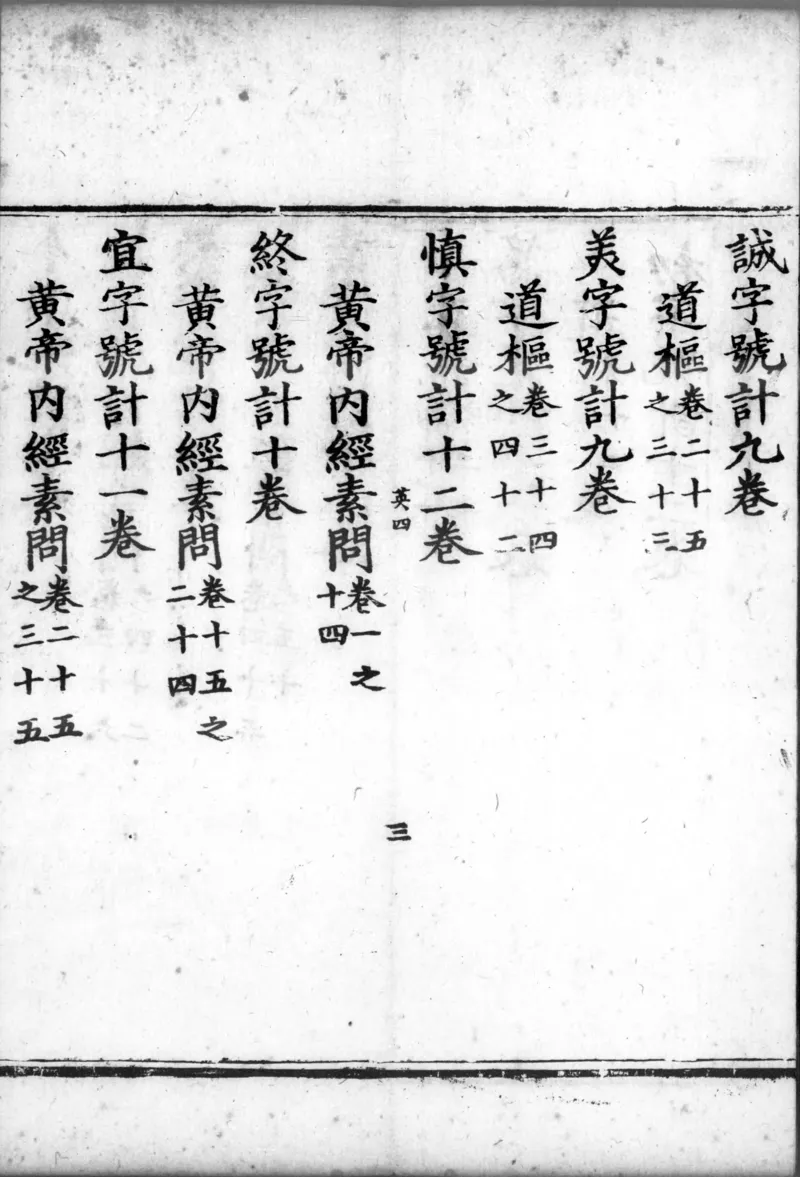 誠字號計九卷
道樞卷二十五之三十三
羙字號計九卷
道樞卷三十四之四十二
慎字號計十二卷
英四
三
黄帝内經素問卷一之十四
終字號計十卷
黄帝内經素問卷十五之二十四
宜字號計十一卷
黄帝内經素問卷二十五之三十五